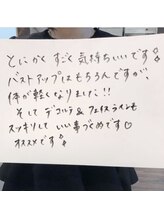 とにかくすごく気持ちいいです
バストアップはもちろんですが、
体が軽くなりました!!
そして デコルテ&フェイスラインも
スッキリして いい事づくめです♡
オススメです